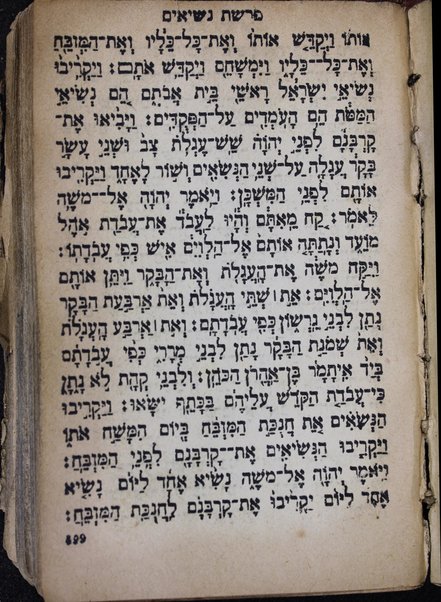 פרשת נשיאים
אוֹתוֹ וַיְקַדֵּשׁ אוֹתוֹ וְאֶת־כָּל־כֵּלָיו וְאֶת־הַמִּזְבֵּחַ
וְאֶת־כָּל־כֵּלָיו וַיִּמְשָׁחֵם וַיְקַדֵּשׁ אֹתָם: וַיַּקְרִיבוּ
נְשִׂיאֵי יִשְׂרָאֵל רָאשֵׁי בֵּית אֲבֹתָם הֵם נְשִׂיאֵי
הַמַּטֹּת הֵם הָעֹמְדִים עַל־הַפְּקֻדִים: וַיָּבִיאוּ אֶת־
קָרְבָּנָם לִפְנֵי יְהוָֹה שֵׁשׁ־עֶגְלֹת צָב וּשְׁנֵי עָשָׂר
בָּקָר עֲגָלָה עַל־שְׁנֵי הַנְּשִׂאִים וְשׁוֹר לְאֶחָד וַיַּקְרִיבוּ
אוֹתָם לִפְנֵי הַמִּשְׁכָּן: וַיֹּאמֶר יְהוָֹה אֶל־מֹשֶׁה
לֵּאמֹר: קַח מֵאִתָּם וְהָיוּ לַעֲבֹד אֶת־עֲבֹדַת אֹהֶל
מוֹעֵד וְנָתַתָּה אוֹתָם אֶל־הַלְוִיִּם אִישׁ כְּפִי עֲבֹדָתוֹ:
וַיִּקַּח מֹשֶׁה אֶת־הָעֲגָלֹת וְאֶת־הַבָּקָר וַיִּתֵּן אוֹתָם
אֶל־הַלְוִיִּם: אֵת ׀ שְׁתֵּי הָעֲגָלֹת וְאֵת אַרְבַּעַת הַבָּקָר
נָתַן לִבְנֵי גֵרְשׁוֹן כְּפִי עֲבֹדָתָם: וְאֵת ׀ אַרְבַּע הָעֲגָלֹת
וְאֵת שְׁמֹנַת הַבָּקָר נָתַן לִבְנֵי מְרָרִי כְּפִי עֲבֹדָתָם
בְּיַד אִיתָמָר בֶּן־אַהֲרֹן הַכֹּהֵן: וְלִבְנֵי קְהָת לֹא נָתָן
כִּי־עֲבֹדַת הַקֹּדֶשׁ עֲלֵיהֶם בַּכָּתֵף יִשָּׂאוּ: וַיַּקְרִיבוּ
הַנְּשִׂאִים אֵת חֲנֻכַּת הַמִּזְבֵּחַ בְּיוֹם הִמָּשַׁח אֹתוֹ
וַיַּקְרִיבוּ הַנְּשִׂיאִם אֶת־קָרְבָּנָם לִפְנֵי הַמִּזְבֵּחַ:
וַיֹּאמֶר יְהוָֹה אֶל־מֹשֶׁה נָשִׂיא אֶחָד לַיּוֹם נָשִׂיא
אֶחָד לַיּוֹם יַקְרִיבוּ אֶת־קָרְבָּנָם לַחֲנֻכַּת הַמִּזְבֵּחַ:
899